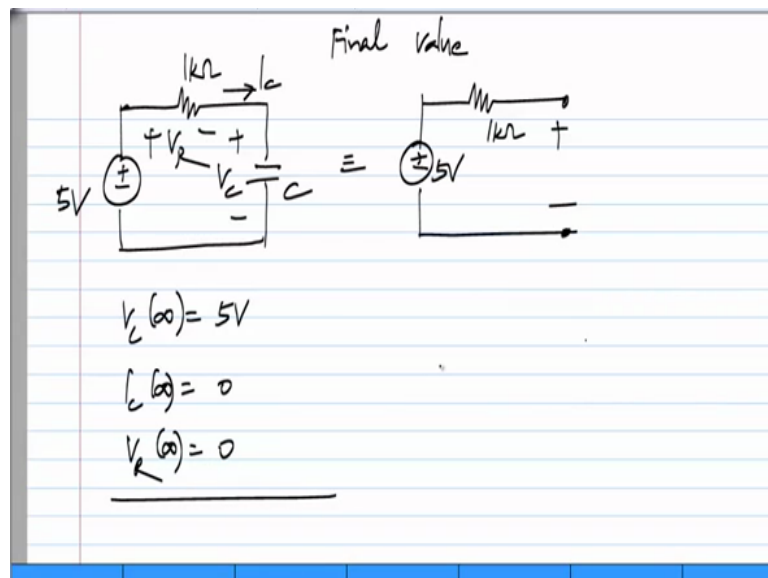 Final Value
1kΩ → Ic
+ VR - +
5V ± Vc C ≡ ± 5V 1kΩ +
- -
Vc(∞) = 5V
Ic(∞) = 0
VR(∞) = 0